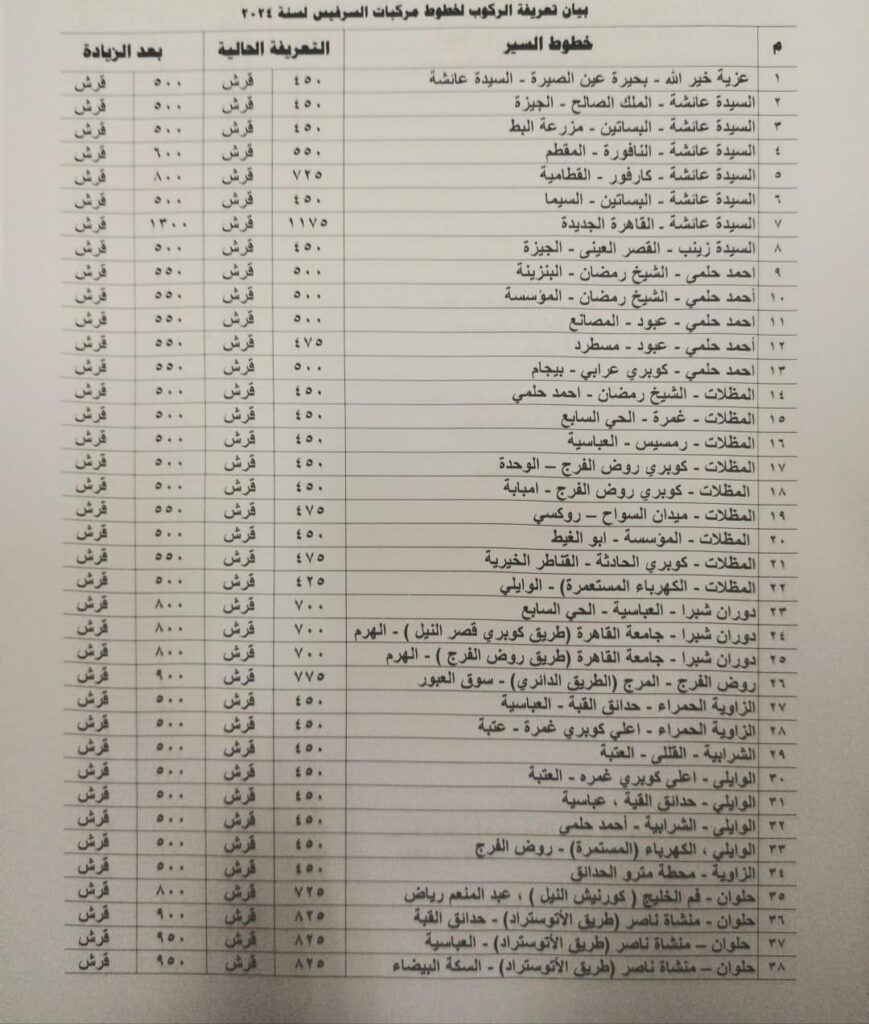 بيان تعريفة الركوب لخطوط مركبات السرفيس لسنة ٢٠٢٤
م خطوط السير التعريفة الحالية بعد الزيادة
١ عزبة خير الله - بحيرة عين الصيرة - السيدة عائشة ٤٥٠ قرش ٥٠٠ قرش
٢ السيدة عائشة - الملك الصالح - الجيزة ٤٥٠ قرش ٥٠٠ قرش
٣ السيدة عائشة - البساتين - مزرعة البط ٤٥٠ قرش ٥٠٠ قرش
٤ السيدة عائشة - النافورة - المقطم ٥٥٠ قرش ٦٠٠ قرش
٥ السيدة عائشة - كارفور - القطامية ٧٢٥ قرش ٨٠٠ قرش
٦ السيدة عائشة - البساتين - السيما ٤٥٠ قرش ٥٠٠ قرش
٧ السيدة عائشة - القاهرة الجديدة ١١٧٥ قرش ١٣٠٠ قرش
٨ السيدة زينب - القصر العينى - الجيزة ٤٥٠ قرش ٥٠٠ قرش
٩ احمد حلمى - الشيخ رمضان - البنزينة ٥٠٠ قرش ٥٥٠ قرش
١٠ أحمد حلمي - الشيخ رمضان - المؤسسة ٥٠٠ قرش ٥٥٠ قرش
١١ احمد حلمي - عبود - المصانع ٥٠٠ قرش ٥٥٠ قرش
١٢ أحمد حلمي - عبود - مسطرد ٤٧٥ قرش ٥٥٠ قرش
١٣ احمد حلمي - كوبري عرابي - بيجام ٥٠٠ قرش ٥٥٠ قرش
١٤ المظلات - الشيخ رمضان - احمد حلمي ٤٥٠ قرش ٥٠٠ قرش
١٥ المظلات - غمرة - الحي السابع ٤٥٠ قرش ٥٠٠ قرش
١٦ المظلات - رمسيس - العباسية ٤٥٠ قرش ٥٠٠ قرش
١٧ المظلات - كوبري روض الفرج – الوحدة ٤٥٠ قرش ٥٠٠ قرش
١٨ المظلات - كوبري روض الفرج - امبابة ٤٥٠ قرش ٥٠٠ قرش
١٩ المظلات - ميدان السواح – روكسي ٤٧٥ قرش ٥٥٠ قرش
٢٠ المظلات - المؤسسة - ابو الغيط ٤٥٠ قرش ٥٠٠ قرش
٢١ المظلات - كوبري الحادثة - القناطر الخيرية ٤٧٥ قرش ٥٥٠ قرش
٢٢ المظلات - الكهرباء المستعمرة) - الوايلي ٤٢٥ قرش ٥٠٠ قرش
٢٣ دوران شبرا - العباسية - الحي السابع ٧٠٠ قرش ٨٠٠ قرش
٢٤ دوران شبرا - جامعة القاهرة (طريق كوبري قصر النيل ) - الهرم ٧٠٠ قرش ٨٠٠ قرش
٢٥ دوران شبرا - جامعة القاهرة (طريق روض الفرج ) - الهرم ٧٠٠ قرش ٨٠٠ قرش
٢٦ روض الفرج - المرج (الطريق الدائري) - سوق العبور ٧٧٥ قرش ٩٠٠ قرش
٢٧ الزاوية الحمراء - حدائق القبة - العباسية ٤٥٠ قرش ٥٠٠ قرش
٢٨ الزاوية الحمراء - اعلي كوبري غمرة - عتبة ٤٥٠ قرش ٥٠٠ قرش
٢٩ الشرابية - القللى - العتبة ٤٥٠ قرش ٥٠٠ قرش
٣٠ الوايلى - اعلى كوبري غمره - العتبة ٤٥٠ قرش ٥٠٠ قرش
٣١ الوايلي - حدائق القبة ، عباسية ٤٥٠ قرش ٥٠٠ قرش
٣٢ الوايلى - الشرابية - أحمد حلمى ٤٥٠ قرش ٥٠٠ قرش
٣٣ الوايلي ، الكهرباء (المستمرة) - روض الفرج ٤٥٠ قرش ٥٠٠ قرش
٣٤ الزاوية - محطة مترو الحدائق ٤٥٠ قرش ٥٠٠ قرش
٣٥ حلوان - فم الخليج ( كورنيش النيل ) ، عبد المنعم رياض ٧٢٥ قرش ٨٠٠ قرش
٣٦ حلوان - منشاة ناصر (طريق الأتوستراد) - حدائق القبة ٨٢٥ قرش ٩٠٠ قرش
٣٧ حلوان – منشاة ناصر (طريق الأتوستراد) - العباسية ٨٢٥ قرش ٩٥٠ قرش
٣٨ حلوان – منشاة ناصر (طريق الأتوستراد) - السكة البيضاء ٨٢٥ قرش ٩٥٠ قرش